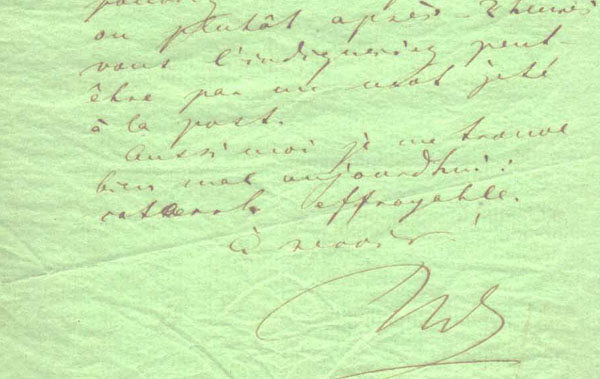 ou plutôt après 2 heures
vous l'indiqueriez peut-
être par un mot jeté
à la post.
Aussi moi je me trouve
bien mal aujourdhui :
catarrh effroyable.
à revoir !